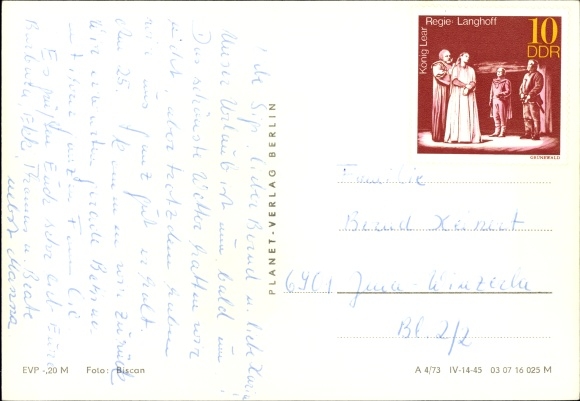 König Lear
Regie· Langhoff
10
DDR
GRÜNEWALD
lieber Bernd u. liebe
Unser Urlaub ist nun bald um
Das schönste Wetter hatten wir
nicht, aber trotzdem haben
wir uns gut erholt
Am 25. kommen wir zurück
Wir erwarten gerade
Es grüßen Euch sehr lieb Eure
Barbara, Thomas u. Beate
nebst Mama
PLANET-VERLAG BERLIN
Familie
Bernd
6901 Jena-Winzerla
Bl. 2/2
EVP -,20 M Foto: Biscan
A 4/73 IV-14-45 03 07 16 025 M